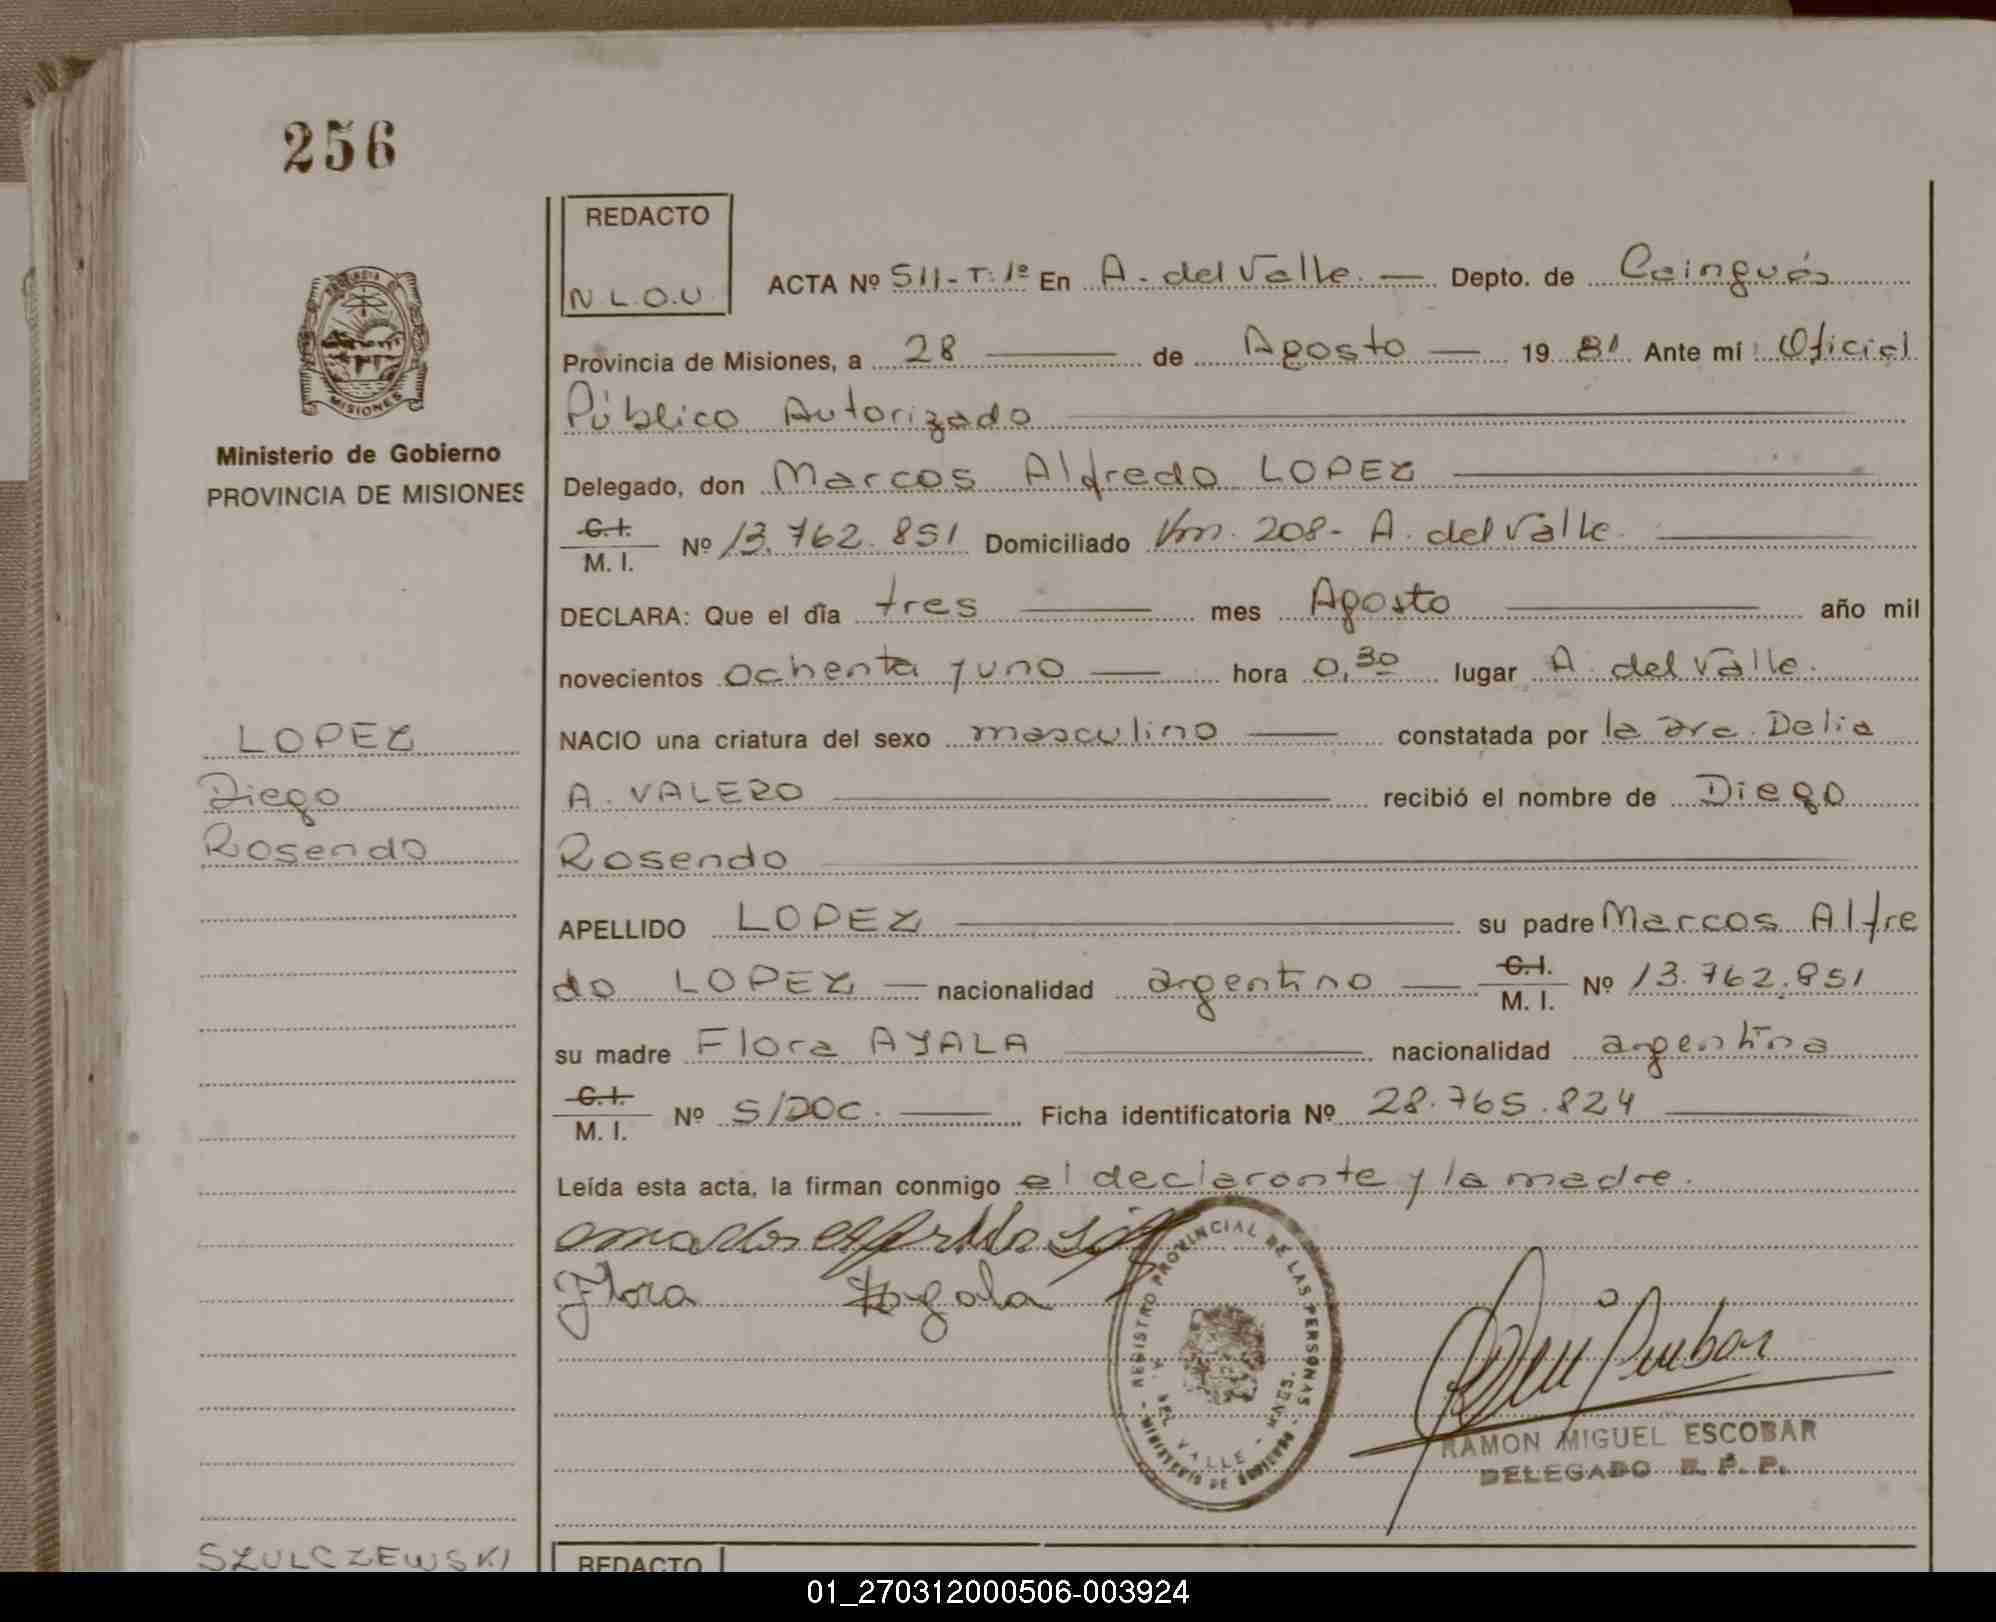 256
REDACTO
N.L.O.U.
ACTA Nº 511-T:1º En A. del Valle. Depto. de Cainguás
Provincia de Misiones, a 28 de Agosto 1981 Ante mí: Oficial
Público Autorizado
Ministerio de Gobierno
PROVINCIA DE MISIONES
MISIONES
Delegado, don Marcos Alfredo LOPEZ
C.I.
M. I. Nº 13.762.851 Domiciliado Km. 208- A. del Valle.
DECLARA: Que el día tres mes Agosto año mil
novecientos ochenta y uno hora 0,30 lugar A. del Valle.
LOPEZ
Diego
Rosendo
NACIO una criatura del sexo masculino constatada por la Dra. Delia
A. VALERO recibió el nombre de Diego
Rosendo
APELLIDO LOPEZ su padre Marcos Alfre
do LOPEZ nacionalidad argentino C.I. M. I. Nº 13.762.851
su madre Flora AYALA nacionalidad argentina
C.I.
M. I. Nº S/DOC. Ficha identificatoria Nº 28.765.824
Leída esta acta, la firman conmigo el declarante y la madre.
Flora Ayala
REGISTRO PROVINCIAL DE LAS PERSONAS
A. DEL VALLE - MNES.
MINISTERIO DE GOBIERNO
RAMON MIGUEL ESCOBAR
DELEGADO R. P. P.
SZULCZEWSKI
REDACTO
01_270312000506-003924